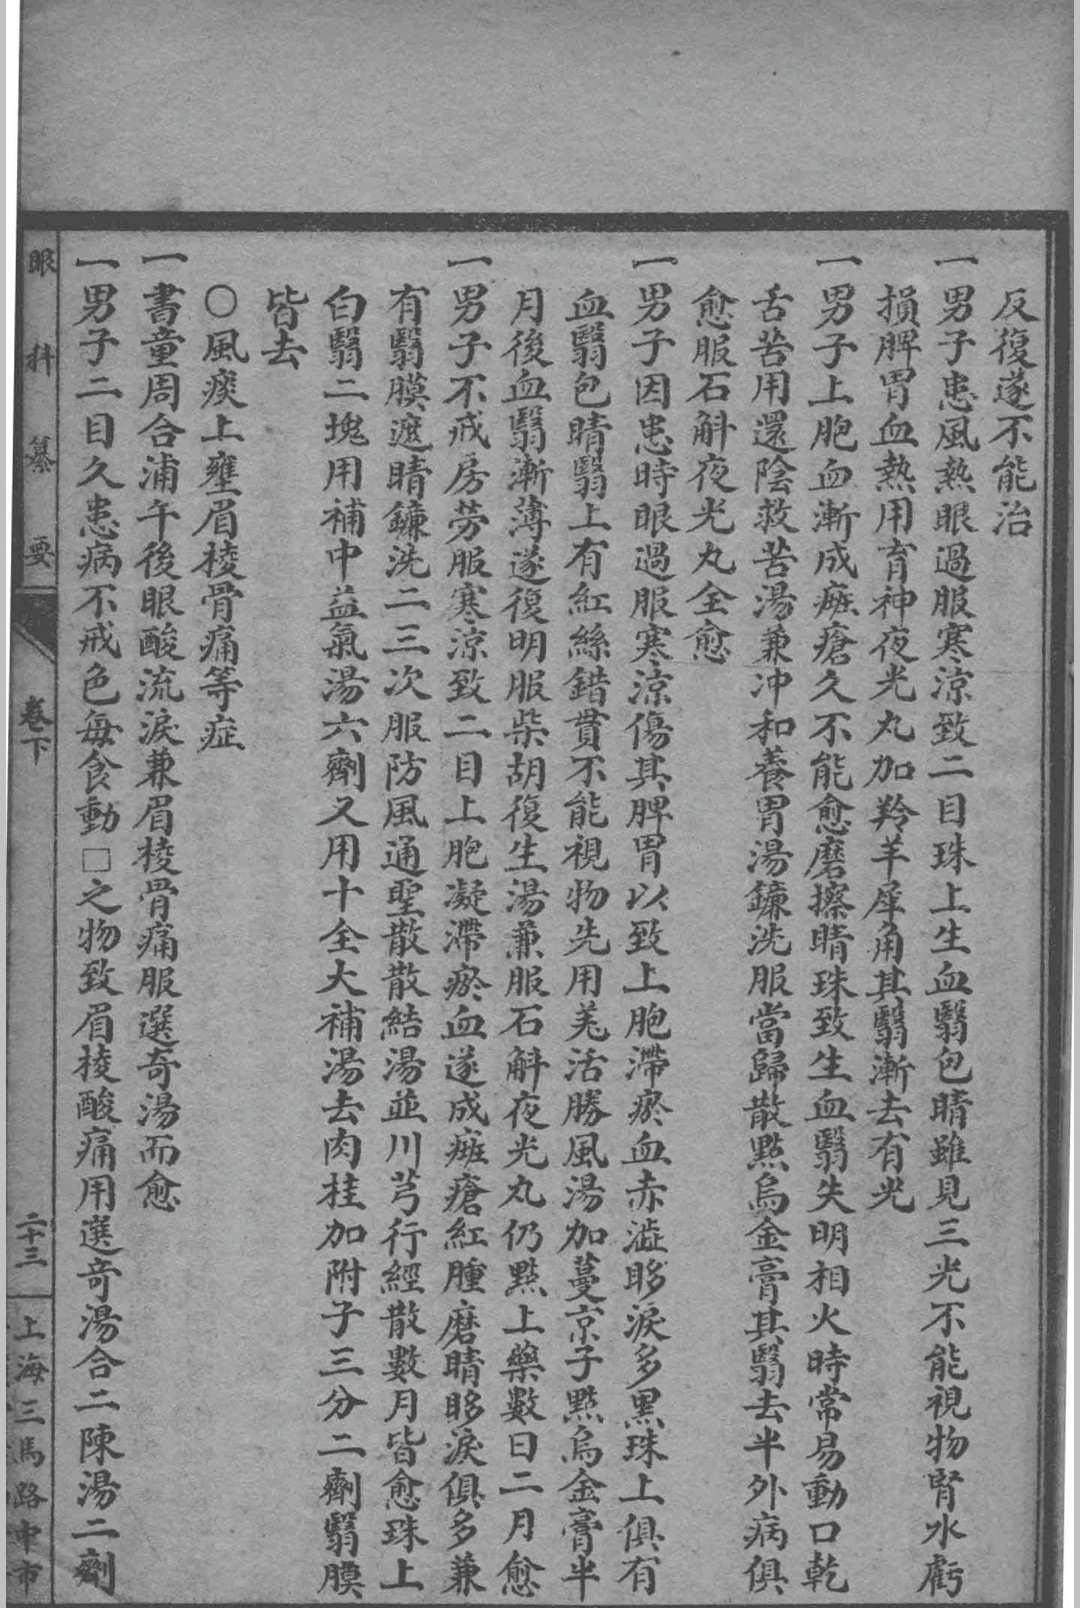 反復遂不能治
一男子患風熱眼過服寒涼致二目珠上生血翳包睛雖見三光不能視物腎水虧
損脾胃血熱用育神夜光丸加羚羊犀角其翳漸去有光
一男子上胞血漸成瘀瘡久不能愈磨擦睛珠致生血翳失明相火時常易動口乾
舌苦用還陰救苦湯兼冲和養胃湯鐮洗服當歸散點烏金膏其翳去半外病俱
愈服石斛夜光丸全愈
一男子因患時眼過服寒涼傷其脾胃以致上胞滯瘀血赤澁眵淚多黑珠上俱有
血翳包睛翳上有紅絲錯貫不能視物先用羌活勝風湯加蔓京子點烏金膏半
月後血翳漸薄遂復明服柴胡復生湯兼服石斛夜光丸仍點上藥數日二月愈
一男子不戒房勞服寒涼致二目上胞凝滯瘀血遂成瘀瘡紅腫磨睛眵淚俱多兼
有翳膜遮睛鐮洗二三次服防風通聖散散結湯並川芎行經散數月皆愈珠上
白翳二塊用補中益氣湯六劑又用十全大補湯去肉桂加附子三分二劑翳膜
皆去
〇風痰上壅眉棱骨痛等症
一書童周合浦午後眼酸流淚兼眉棱骨痛服選奇湯而愈
一男子二目久患病不戒色每食動□之物致眉棱酸痛用選奇湯合二陳湯二劑
眼科纂要
卷下
二十三
上海三馬路中市